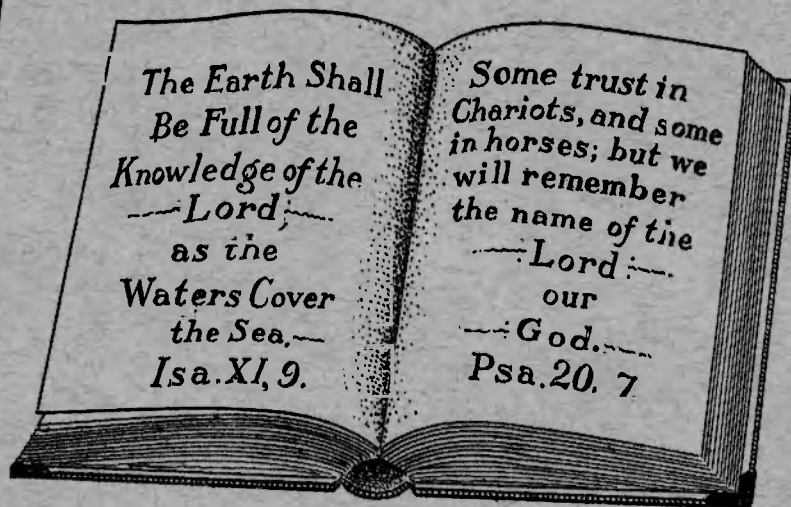 The Earth Shall
Be Full of the
Knowledge of the
Lord,
as the
Waters Cover
the Sea.
Isa. XI, 9.
Some trust in
Chariots, and some
in horses; but we
will remember
the name of the
Lord
our
God.
Psa. 20. 7